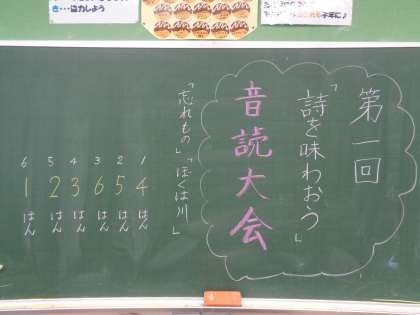 第一回
「詩を味わおう」
音読大会
「忘れもの」「ぼくは川」
1 4はん
2 5はん
3 6はん
4 3はん
5 2はん
6 1はん
き・・・協力しよう